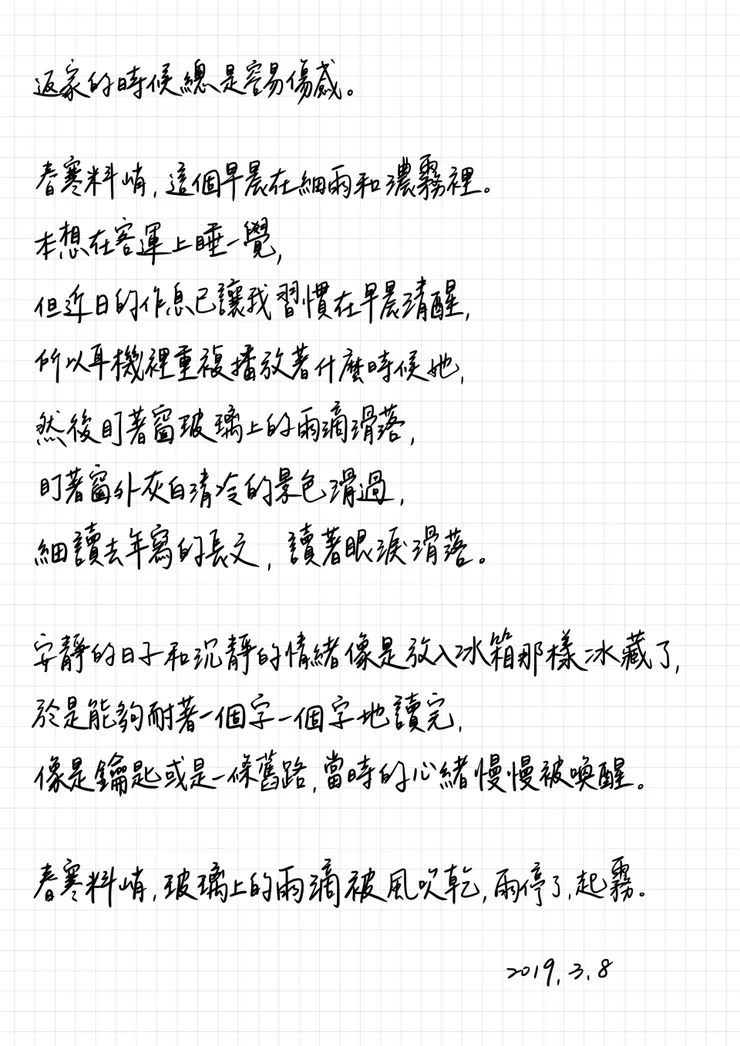 返家的時候總是容易傷感。
春寒料峭，這個早晨在細雨和濃霧裡。
本想在客運上睡一覺，
但近日的作息已讓我習慣在早晨清醒，
所以耳機裡重複播放著什麼時候她，
然後盯著窗玻璃上的雨滴滑落，
盯著窗外灰白清冷的景色滑過，
細讀去年寫的長文，讀著眼淚滑落。
安靜的日子和沉靜的情緒像是放入冰箱那樣冰藏了，
於是能夠耐著一個字一個字地讀完，
像是鑰匙或是一條舊路，當時的心緒慢慢被喚醒。
春寒料峭，玻璃上的雨滴被風吹乾，雨停了，起霧。
2019.3.8